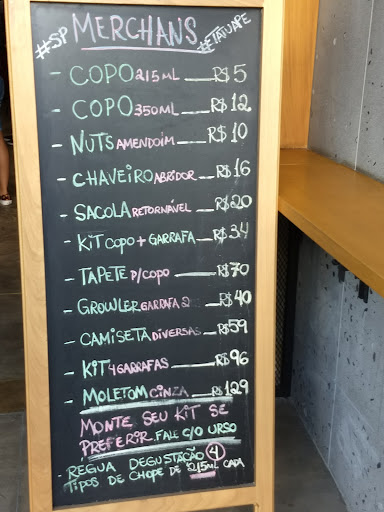 #SP MERCHANS #TATUAPE
- COPO 215ML R$ 5
- COPO 350ML R$ 12
- NUTS AMENDOIM R$ 10
- CHAVEIRO ABRIDOR R$ 16
- SACOLA RETORNÁVEL R$ 20
- KIT COPO + GARRAFA R$ 34
- TAPETE P/COPO R$ 70
- GROWLER GARRAFA 2 R$ 40
- CAMISETA DIVERSAS R$ 59
- KIT 4 GARRAFAS R$ 96
- MOLETOM CINZA R$ 129
MONTE SEU KIT SE
PREFERIR. FALE C/O URSO
- REGUA DEGUSTAÇÃO 4
TIPOS DE CHOPE DE 215ML CADA